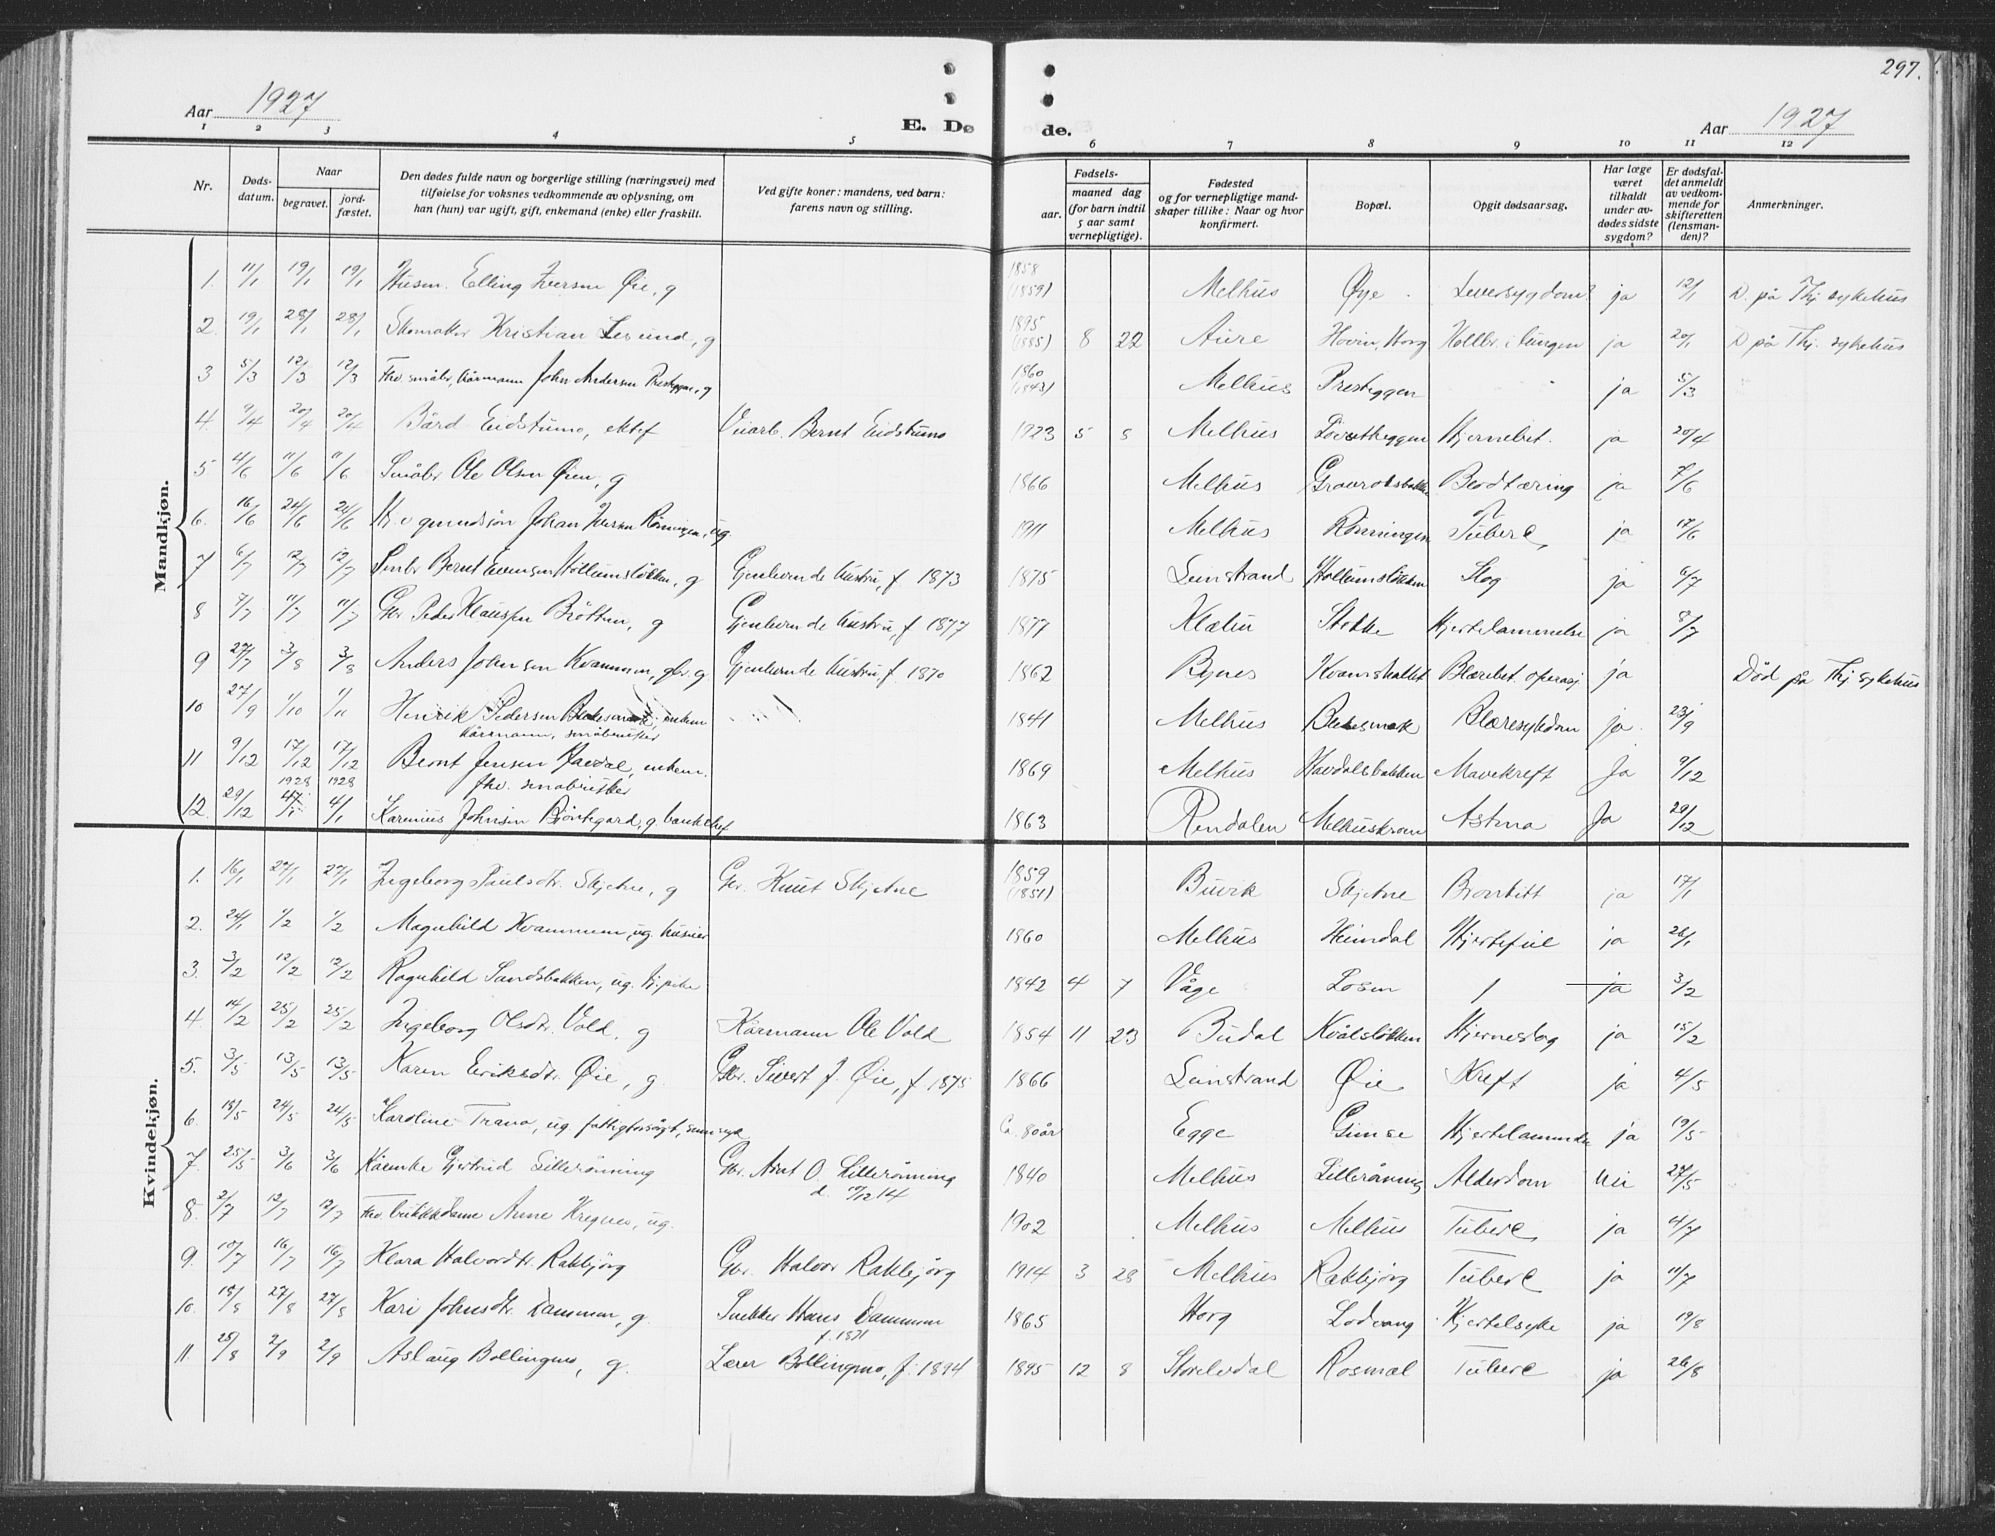 297.
Aar 1927
Aar 1927
E. Dø de.
1 2 3 4 5 6 7 8 9 10 11 12
Nr.
Døds-
datum.
Naar
begravet.
jord-
fæstet.
Den dødes fulde navn og borgerlige stilling (næringsvei) med
tilføielse for voksnes vedkommende av oplysning, om
han (hun) var ugift, gift, enkemand (enke) eller fraskilt.
Ved gifte koner: mandens, ved barn:
farens navn og stilling.
Fødsels-
aar.
maaned dag
(for barn indtil
5 aar samt
vernepligtige).
Fødested
og for vernepligtige mand-
skaper tillike: Naar og hvor
konfirmert.
Bopæl.
Opgit dødsaarsag.
Har læge
været
tilkaldt
under av-
dødes sidste
sygdom?
Er dødsfal-
det anmeldt
av vedkom-
mende for
skifteretten
(lensman-
den)?
Anmerkninger.
Mandkjøn.
1. 11/1 19/1 19/1 Husm. Elling Iversen Øie, g 1858 (1859) Melhus Øye Leversygdom? ja 12/1 D. på Thj. sykehus
2. 19/1 28/1 28/1 Skomaker Kristian Lesund, g 1895 (1885) 8 22 Aure Hovin, Horg i lungen ja 20/1 D på Thj. sykehus
3 5/3 12/3 12/3 Fhv. småbr., kårmann John Andersen Presteggen, g 1860 (1843) Melhus Presteggen ja 5/3
4. 9/4 20/4 20/4 Bård Eidstumo, ektef Bernt Eidstumo 1923 5 5 Melhus Hjernebet. ja 20/4
5 4/6 11/6 11/6 Småbr Ole Olsen Øien, g 1866 Melhus Blodtæring ja 7/6
6. 16/6 24/6 24/6 Johan Iversen Rønningen, ug. 1911 Melhus Rønningen Tuberk. ja 17/6
7 6/7 12/7 12/7 Smbr Bernt Evensen Hollumsløkken, g Gjenlevende hustru, f. 1873 1875 Leinstrand Hollumsløkken Slag ja 6/7
8 7/7 11/7 11/7 Gbr Peder Klausen Brøttem, g Gjenlevende hustru, f 1877 1877 Klæbu Stokke Hjertelammelse ja 8/7
9 27/7 3/8 3/8 Anders Johnsen Kvammen, gbr. g. Gjenlevende hustru f. 1870 1862 Bynes Kvamshallet Blærebet. operasj ja Død på Thj sykehus
10 27/9 1/10 1/11 Henrik Pedersen enkem
kårmann, småbruker 1841 Melhus Blæresykdom ja. 23/9
11 9/12 17/12 17/12 Bernt Jensen Havdal, enkem.
fhv. smabruker 1869 Melhus Havdalsbakken Mavekreft Ja 9/12
1928 1928
12. 29/12 4/1 4/1 Karenius Johnsen Bjøntegard, g. 1863 Rendalen Melhuskroen Astma Ja 29/12
Kvindekjøn.
1. 16/1 27/1 27/1 Ingeborg Paulsdtr. Skjetne, g Gbr. Knut Skjetne 1859 (1851) Buvik Skjetne Bronkitt ja 17/1
2. 24/1 1/2 1/2 Magnhild Kvammen, ug. husvær 1860 Melhus Heimdal Hjertefeil ja 26/1
3. 3/2 12/2 12/2 Ragnhild Sandsbakken, ug. 1842 4 7 Våge Losen ja 3/2
4 14/2 25/2 25/2 Ingeborg Olsdtr. Vold, g Kårmann Ole Vold 1854 11 23 Budal Kvålsløkken Hjerneslag ja 15/2
5. 3/5 13/5 13/5 Karen Eriksdtr. Øie, g. Gbr. Sivert J. Øie, f. 1875 1866 Leinstrand Øie Kreft ja 4/5
6. 18/5 24/5 24/5 Karoline Trana, ug. fattigforsørgt, Ca. 80 år Egge Gimse Hjertelammelse ja 19/5
7. 25/5 3/6 3/6 Kårenke Gjertrud Lillerønning Gbr. Arnt O. Lillerønning
d. 10/12 14 1840 Melhus Lillerønning Alderdom Nei 27/5
8. 2/7 12/7 12/7 Fhv. butikkdame Anne Kregnes, ug. 1902 Melhus Melhus Tuberk ja 4/7
9. 10/7 16/7 16/7 Klara Halvordtr. Rakbjørg Gbr. Halvor Rakbjørg 1914 3 28 Melhus Rakbjørg Tuberk ja 11/7
10. 18/8 27/8 27/8 Kari Johnsdtr. Dammem, g. Snekker Hans Dammem
f. 1871 1865 Horg Lodvang Hjertelsyke ja 19/8
11 25/8 2/9 2/9 Aslaug Bollingmo, g. Lærer Bollingmo, f. 1894 1895 12 8 Storelvdal Rosmæl Tuberk ja 26/8